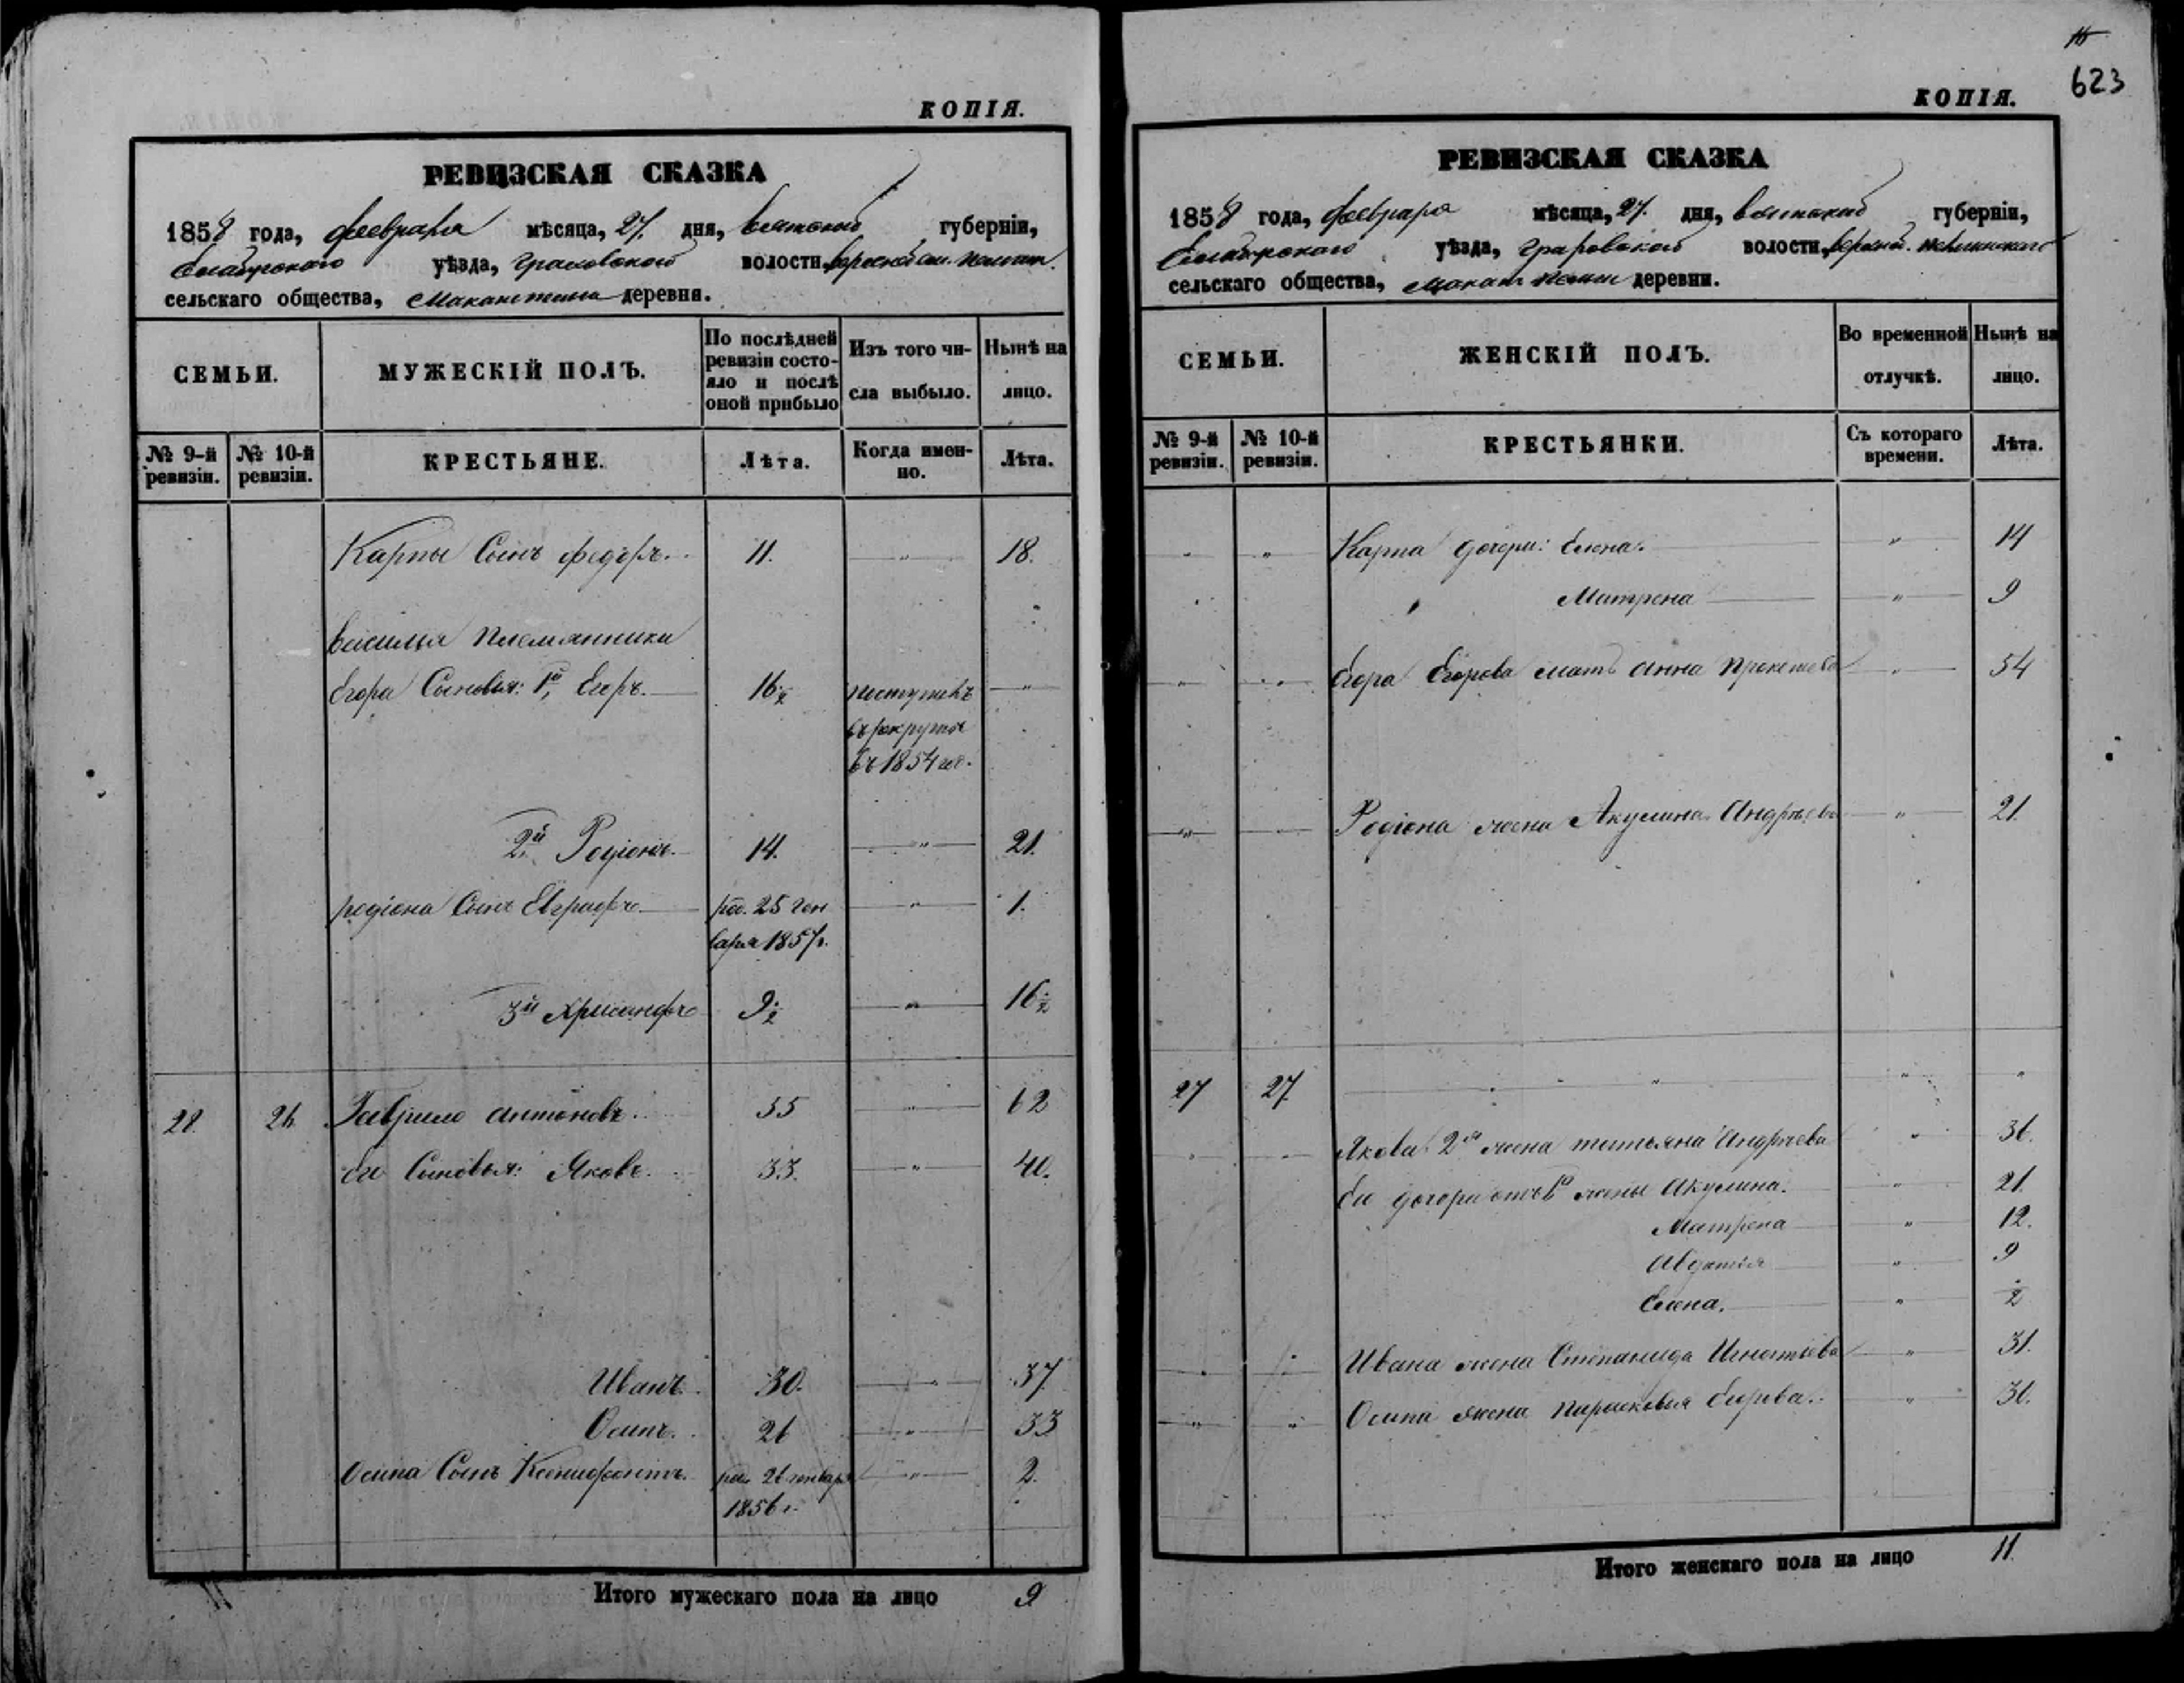 КОПІЯ.
РЕВИЗСКАЯ СКАЗКА
1858 года, февраля мѣсяца, 27. дня, Вятской губерніи,
Елабужского уѣзда, Граховской волости,
сельскаго общества, деревня.
СЕМЬИ. МУЖЕСКІЙ ПОЛЪ. По послѣдней ревизіи состояло и послѣ оной прибыло Изъ того числа выбыло. Нынѣ на лицо.
№ 9-й ревизіи. № 10-й ревизіи. КРЕСТЬЯНЕ. Лѣта. Когда именно. Лѣта.
Карпы Сынъ Федоръ. 11. " 18.
Василья племянники
Егора Сыновья: 1й, Егоръ. 16½ поступилъ "
въ рекруты
въ 1854 го.
2й Родіонъ. 14. " 21.
родіона Сынъ Евграфъ род. 25 Ген " 1.
варя 1857 г.
3й Хрисанфъ 9½ " 16½
28. 26. Гаврило Антоновъ. 55 " 62
Его Сыновья: Яковъ. 33. " 40.
Иванъ. 30. " 37.
Осипъ. 26 " 33
Осипа Сынъ Ксенофонтъ. род. 26 январ " 2.
1856 г.
Итого мужескаго пола на лицо 9
623
КОПІЯ.
РЕВИЗСКАЯ СКАЗКА
1858 года, февраля мѣсяца, 27. дня, Вятской губерніи,
Елабужского уѣзда, Граховской волости,
сельскаго общества, деревни.
СЕМЬИ. ЖЕНСКІЙ ПОЛЪ. Во временной отлучкѣ. Нынѣ на лицо.
№ 9-й ревизіи. № 10-й ревизіи. КРЕСТЬЯНКИ. Съ котораго времени. Лѣта.
" " Карпа дочери: Елена. " 14
Матрена " 9
" " Егора Егорова мать Анна " 54
" " Родіона жена Акулина Андрѣева " 21.
27 27. " " "
" " Якова 2я жена татьяна Андрѣева " 36.
Его дочери отъ 1й жены Акулина. " 21.
Матрена " 12.
Авдотья " 9
Елена. " ½
" " Ивана жена Степанида Игнатьева " 31.
" " Осипа жена Парасковья " 30.
Итого женскаго пола на лицо 11.